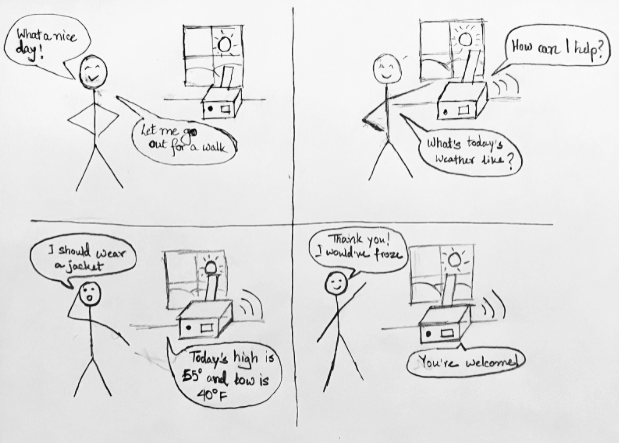 What a nice
day!
Let me go
out for a walk
How can I help?
What's today's
weather like?
I should wear
a jacket
Today's high is
55° and low is
40°F
Thank you!
I would've froze
You're welcomed